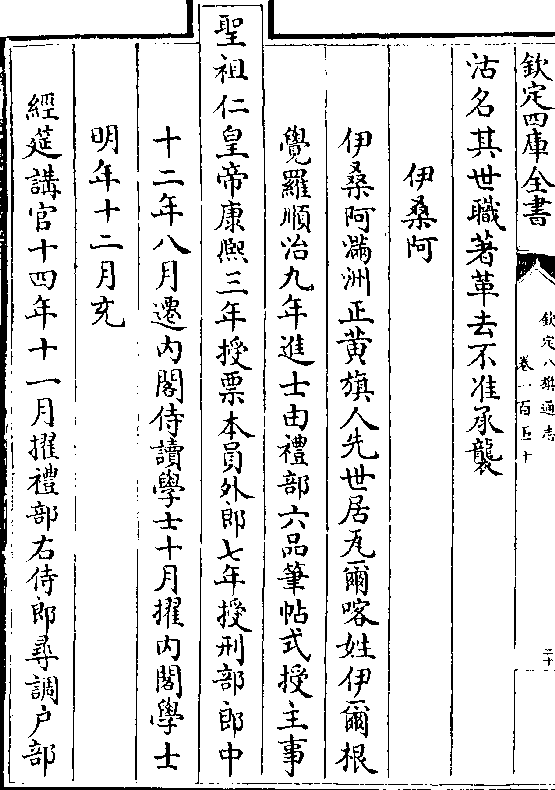 欽定四庫全書
欽定八旗通志
卷一百五十
二十
沽名其世職著革去不准承襲
伊桑阿
伊桑阿滿洲正黃旗人先世居瓦爾喀姓伊爾根
覺羅順治九年進士由禮部六品筆帖式授主事
聖祖仁皇帝康熙三年授票本員外郎七年授刑部郎中
十二年八月遷內閣侍讀學士十月擢內閣學士
明年十二月充
經筵講官十四年十一月擢禮部右侍郎尋調户部